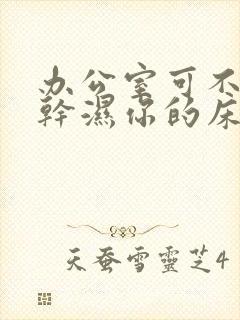 办公室可不
幹濕你的床
天蚕雪靈芝4